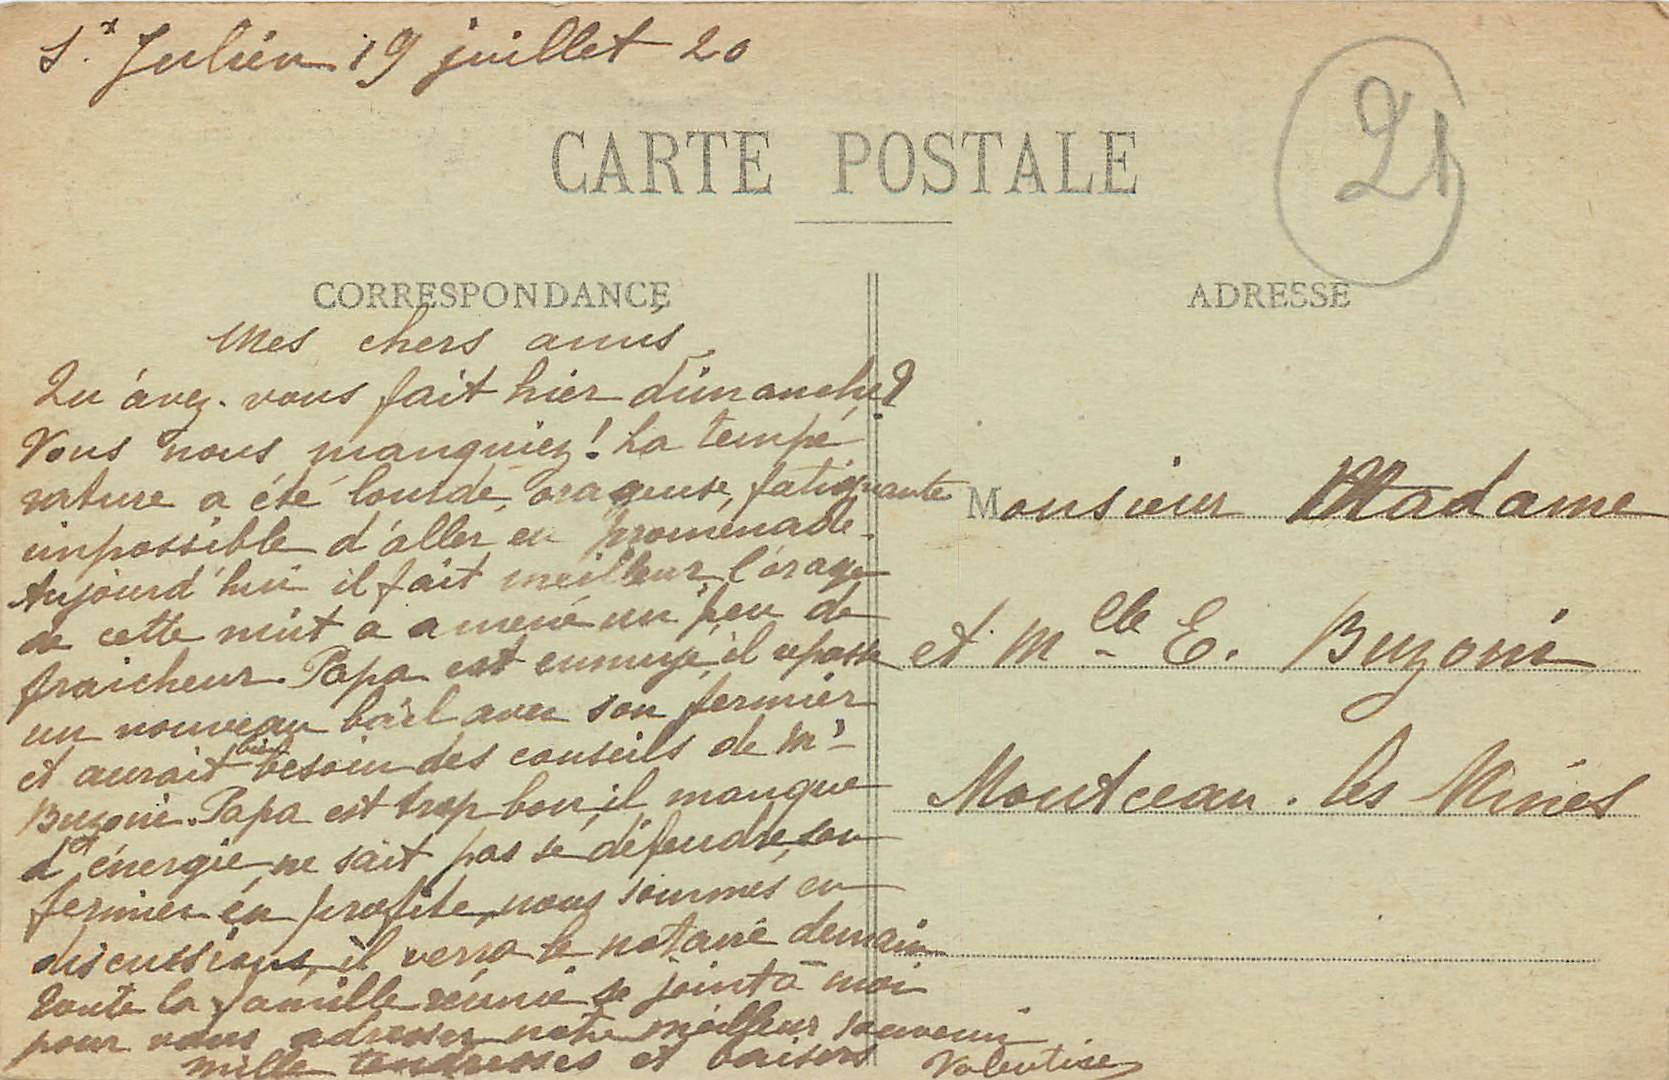 St Julien 19 juillet 20
21
CARTE POSTALE
CORRESPONDANCE
Mes chers amis,
Qu'avez-vous fait hier dimanche?
Vous nous manquiez! La tempé
rature a été lourde, orageuse, fatiguante
impossible d'aller en promenade.
Aujourd'hui il fait meilleur, l'orage
de cette nuit a amené un peu de
fraicheur. Papa est ennuyé, il repasse
un nouveau bail avec son fermier
et aurait bien besoin des conseils de Mr
Buzoni. Papa est trop bon, il manque
d'énergie et ne sait pas se défendre, son
fermier en profite, nous sommes en
discussions, il verra le notaire demain
toute la famille réunie se joint à moi
pour vous adresser notre meilleur souvenir
mille tendresses et baisers Valentine
ADRESSE
Monsieur Madame
et Mlle E. Buzoni
Montceau-les Mines